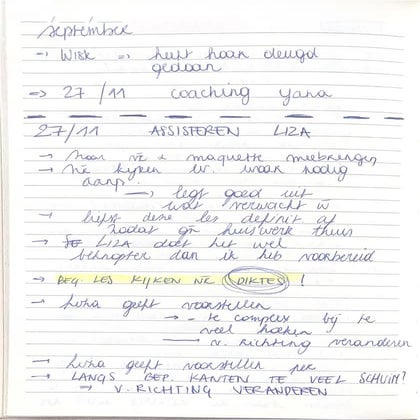 september
→ Wisk ⇒ heeft haar deugd
gedaan
⇒ 27/11 coaching yana
27/11 ASSISTEREN LIZA
→ maquette meebrengen
→ kijken waar nodig
aanp.
→ legt goed uit
wat verwacht w
→ liefst deze les definit af
zodat gn huiswerk thuis
→ LIZA doet het wel
beknopter dan ik heb voorbereid
→ BEG. LES KIJKEN NR DIKTES !
→ geeft voorstellen
→ - te complex bij te
veel hoeken
→ v. richting veranderen
→ geeft voorstellen per
→ LANGS BEP. KANTEN TE VEEL SCHUIM?
→ V. RICHTING VERANDEREN